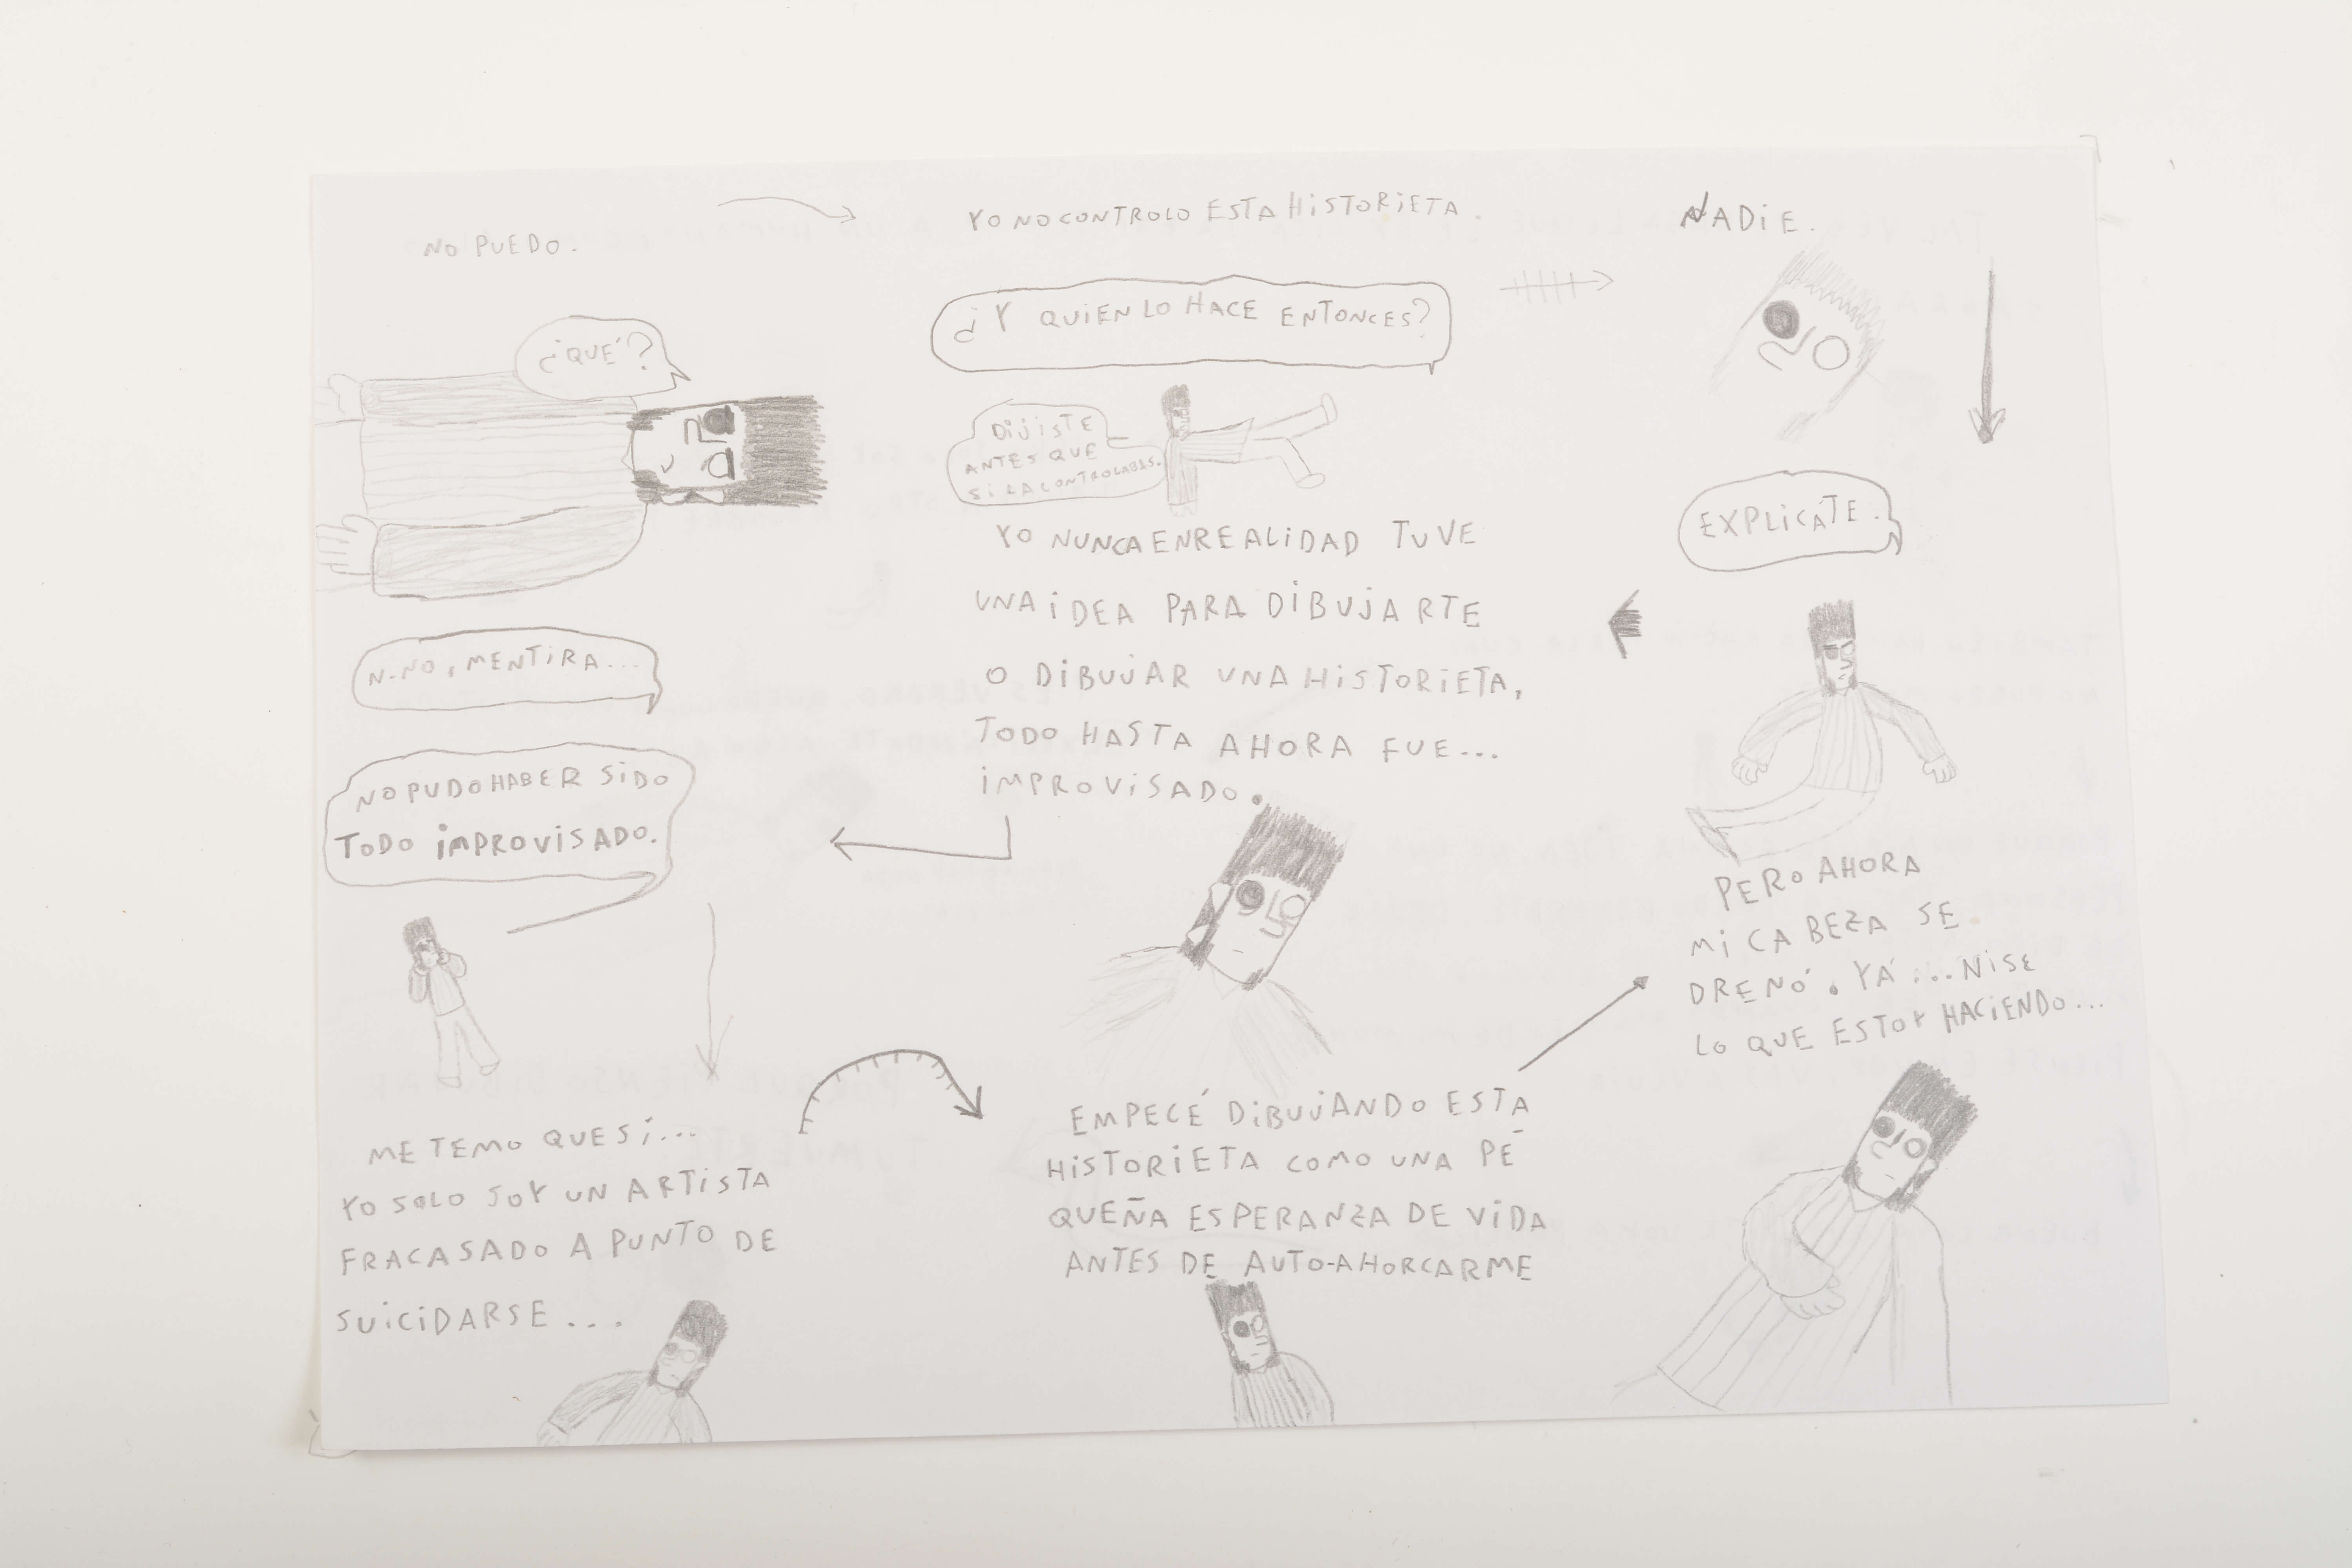 NO PUEDO.
¿QUÉ?
YO NO CONTROLO ESTA HISTORIETA.
¿Y QUIEN LO HACE ENTONCES?
DIJISTE
ANTES QUE
SI LA CONTROLABAS.
NADIE.
EXPLICÁTE.
YO NUNCA EN REALIDAD TUVE
UNA IDEA PARA DIBUJARTE
O DIBUJAR UNA HISTORIETA,
TODO HASTA AHORA FUE...
IMPROVISADO.
N-NO, MENTIRA...
NO PUDO HABER SIDO
TODO IMPROVISADO.
ME TEMO QUE SI...
YO SOLO SOY UN ARTISTA
FRACASADO A PUNTO DE
SUICIDARSE...
EMPECÉ DIBUJANDO ESTA
HISTORIETA COMO UNA PE-
QUEÑA ESPERANZA DE VIDA
ANTES DE AUTO-AHORCARME
PERO AHORA
MI CABEZA SE
DRENÓ. YÁ... NI SE
LO QUE ESTOY HACIENDO...